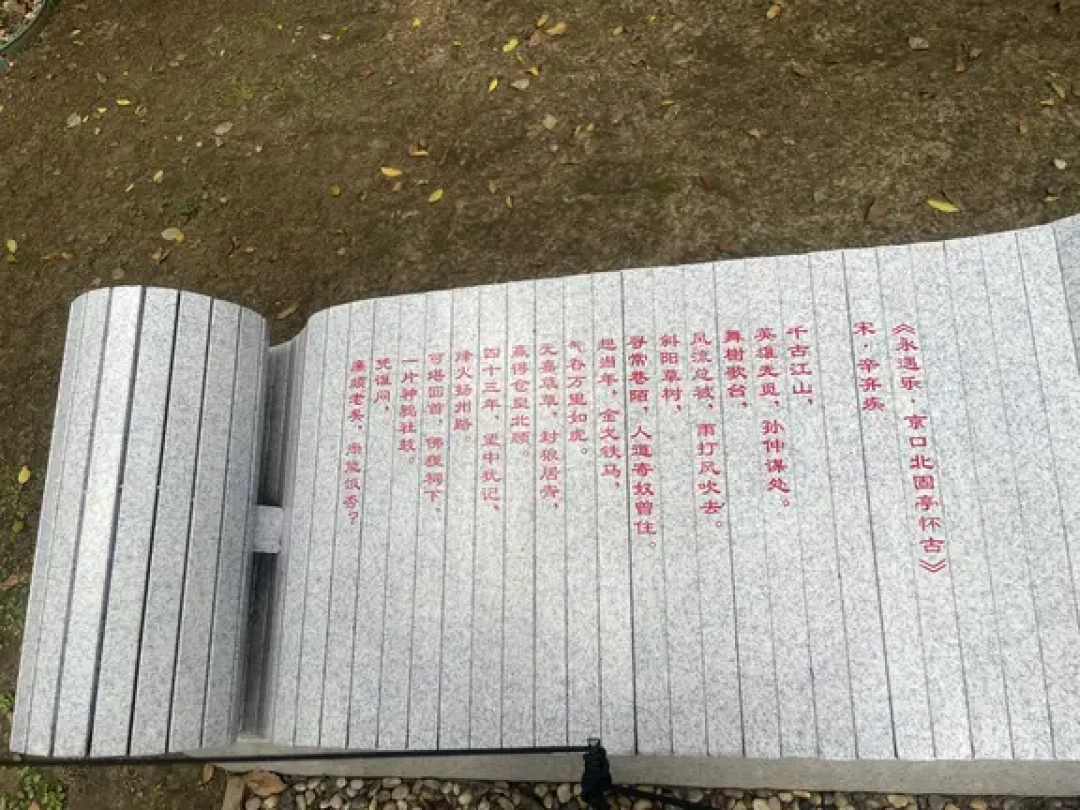 《永遇乐，京口北固亭怀古》
宋·辛弃疾
千古江山，
英雄无觅，孙仲谋处。
舞榭歌台，
风流总被，雨打风吹去。
斜阳草树，
寻常巷陌，人道寄奴曾住。
想当年，金戈铁马，
气吞万里如虎。
元嘉草草，封狼居胥，
赢得仓皇北顾。
四十三年，望中犹记，
烽火扬州路。
可堪回首，佛狸祠下，
一片神鸦社鼓。
凭谁问，
廉颇老矣，尚能饭否？